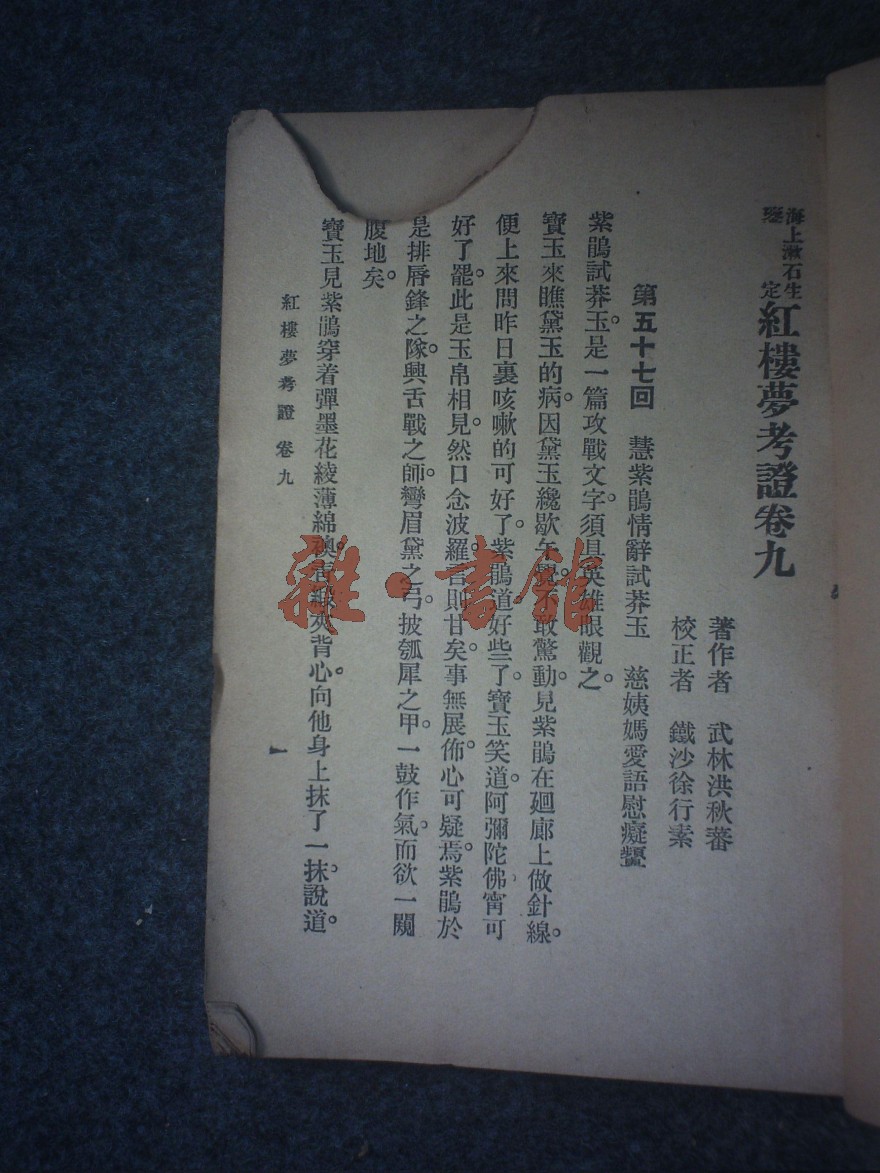 海上漱石生
鑒定
紅樓夢考證卷九
著作者　武林洪秋蕃
校正者　鐵沙徐行素
第五十七回　慧紫鵑情辭試莽玉　慈姨媽愛語慰癡顰
紫鵑試莽玉。是一篇攻戰文字。須具英雄眼觀之。
寶玉來瞧黛玉的病。因黛玉纔歇午覺。不敢驚動。見紫鵑在廻廊上做針線。
便上來問昨日裏咳嗽的可好了。紫鵑道好些了。寶玉笑道。阿彌陀佛。甯可
好了罷。此是玉帛相見。然口念波羅。言則甘矣。事無展佈。心可疑焉。紫鵑於
是排唇鋒之隊。興舌戰之師。彎眉黛之弓。披瓠犀之甲。一鼓作氣。而欲一闚
腹地矣。
寶玉見紫鵑穿着彈墨花綾薄綿襖。青緞夾背心。向他身上抹了一抹。說道。
紅樓夢考證　卷九
一
雜·書館